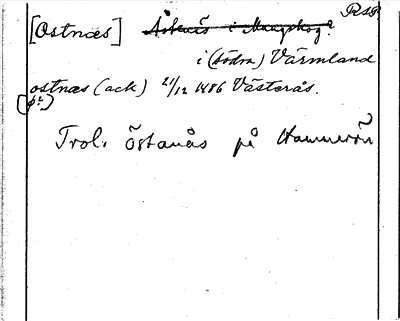 [Ostnæs] Åsknäs i Mangskog?
i (södra) Värmland
ostnæs (ack) 21/12 1486 Västerås.
Trol. Östanås på Hammarön